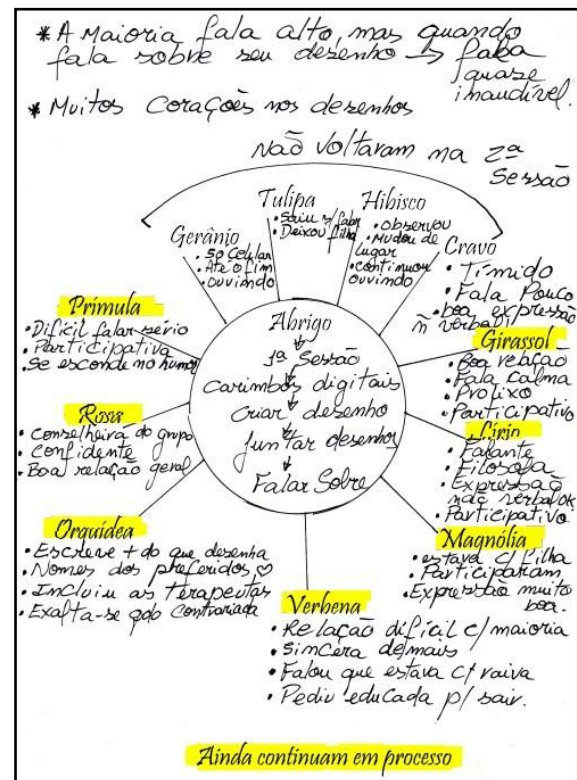 * A Maioria fala alto, mas quando
fala sobre seu desenho → fala
quase
inaudível.
* Muitos Corações nos desenhos
Não Voltaram na 2ª
Sessão
Gerânio
• Só Celular
• Até o fim
ouvindo
Tulipa
• Saiu s/ falar
• Deixou filha
Hibisco
• Observou
• Mudou de
lugar
• continuou
ouvindo
Cravo
• Tímido
• Fala Pouco
• boa expressão
ñ verbal
Prímula
• Difícil falar sério
• Participativa
• Se esconde no humor
Rosa
• Conselheira do grupo
• Confidente
• Boa relação geral
Orquídea
• Escreve + do que desenha
• Nomes dos preferidos ♡
• Incluiu as terapeutas
• Exalta-se qdo contrariada
Abrigo
1ª Sessão
Carimbos digitais
Criar desenho
Juntar desenhos
Falar Sobre
Girassol
• Boa relação
• Fala calma
• Prolixo
• Participativo
Lírio
• Falante
• Filosofa
• Expressão
não verbal ok
• Participativo
Magnólia
• estava c/ filha
• Participaram
• Expressão muito
boa.
Verbena
• Relação difícil c/ maioria
• Sincera demais
• Falou que estava c/ raiva
• Pediu educada p/ sair.
Ainda continuam em processo